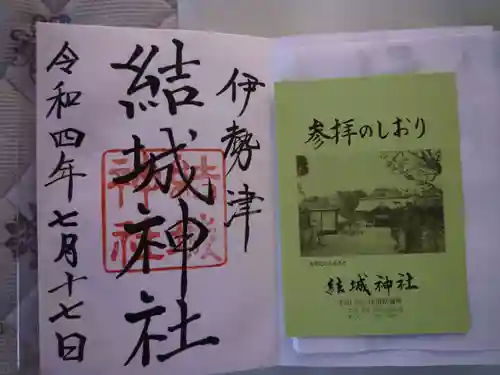 伊勢津
結城神社
結城神社
令和四年七月十七日
参拝のしおり
結城神社